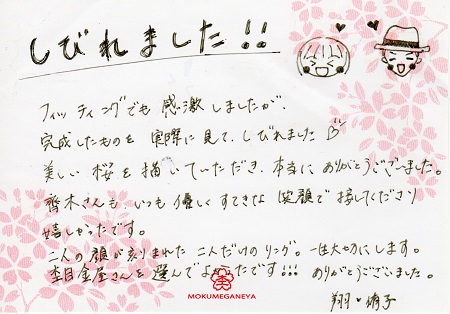 しびれました!!
フィッティングでも感激しましたが、
完成したものを実際に見て、しびれました
美しい桜を描いていただき、本当にありがとうございました。
齊木さんも、いつも優しくすてきな笑顔で接してくださり
嬉しかったです。
二人の顔が刻りまれた二人だけのリング。一生大切にします。
杢目金屋さんを選んでよかったです!!! ありがとうございました。
MOKUMEGANEYA
翔・